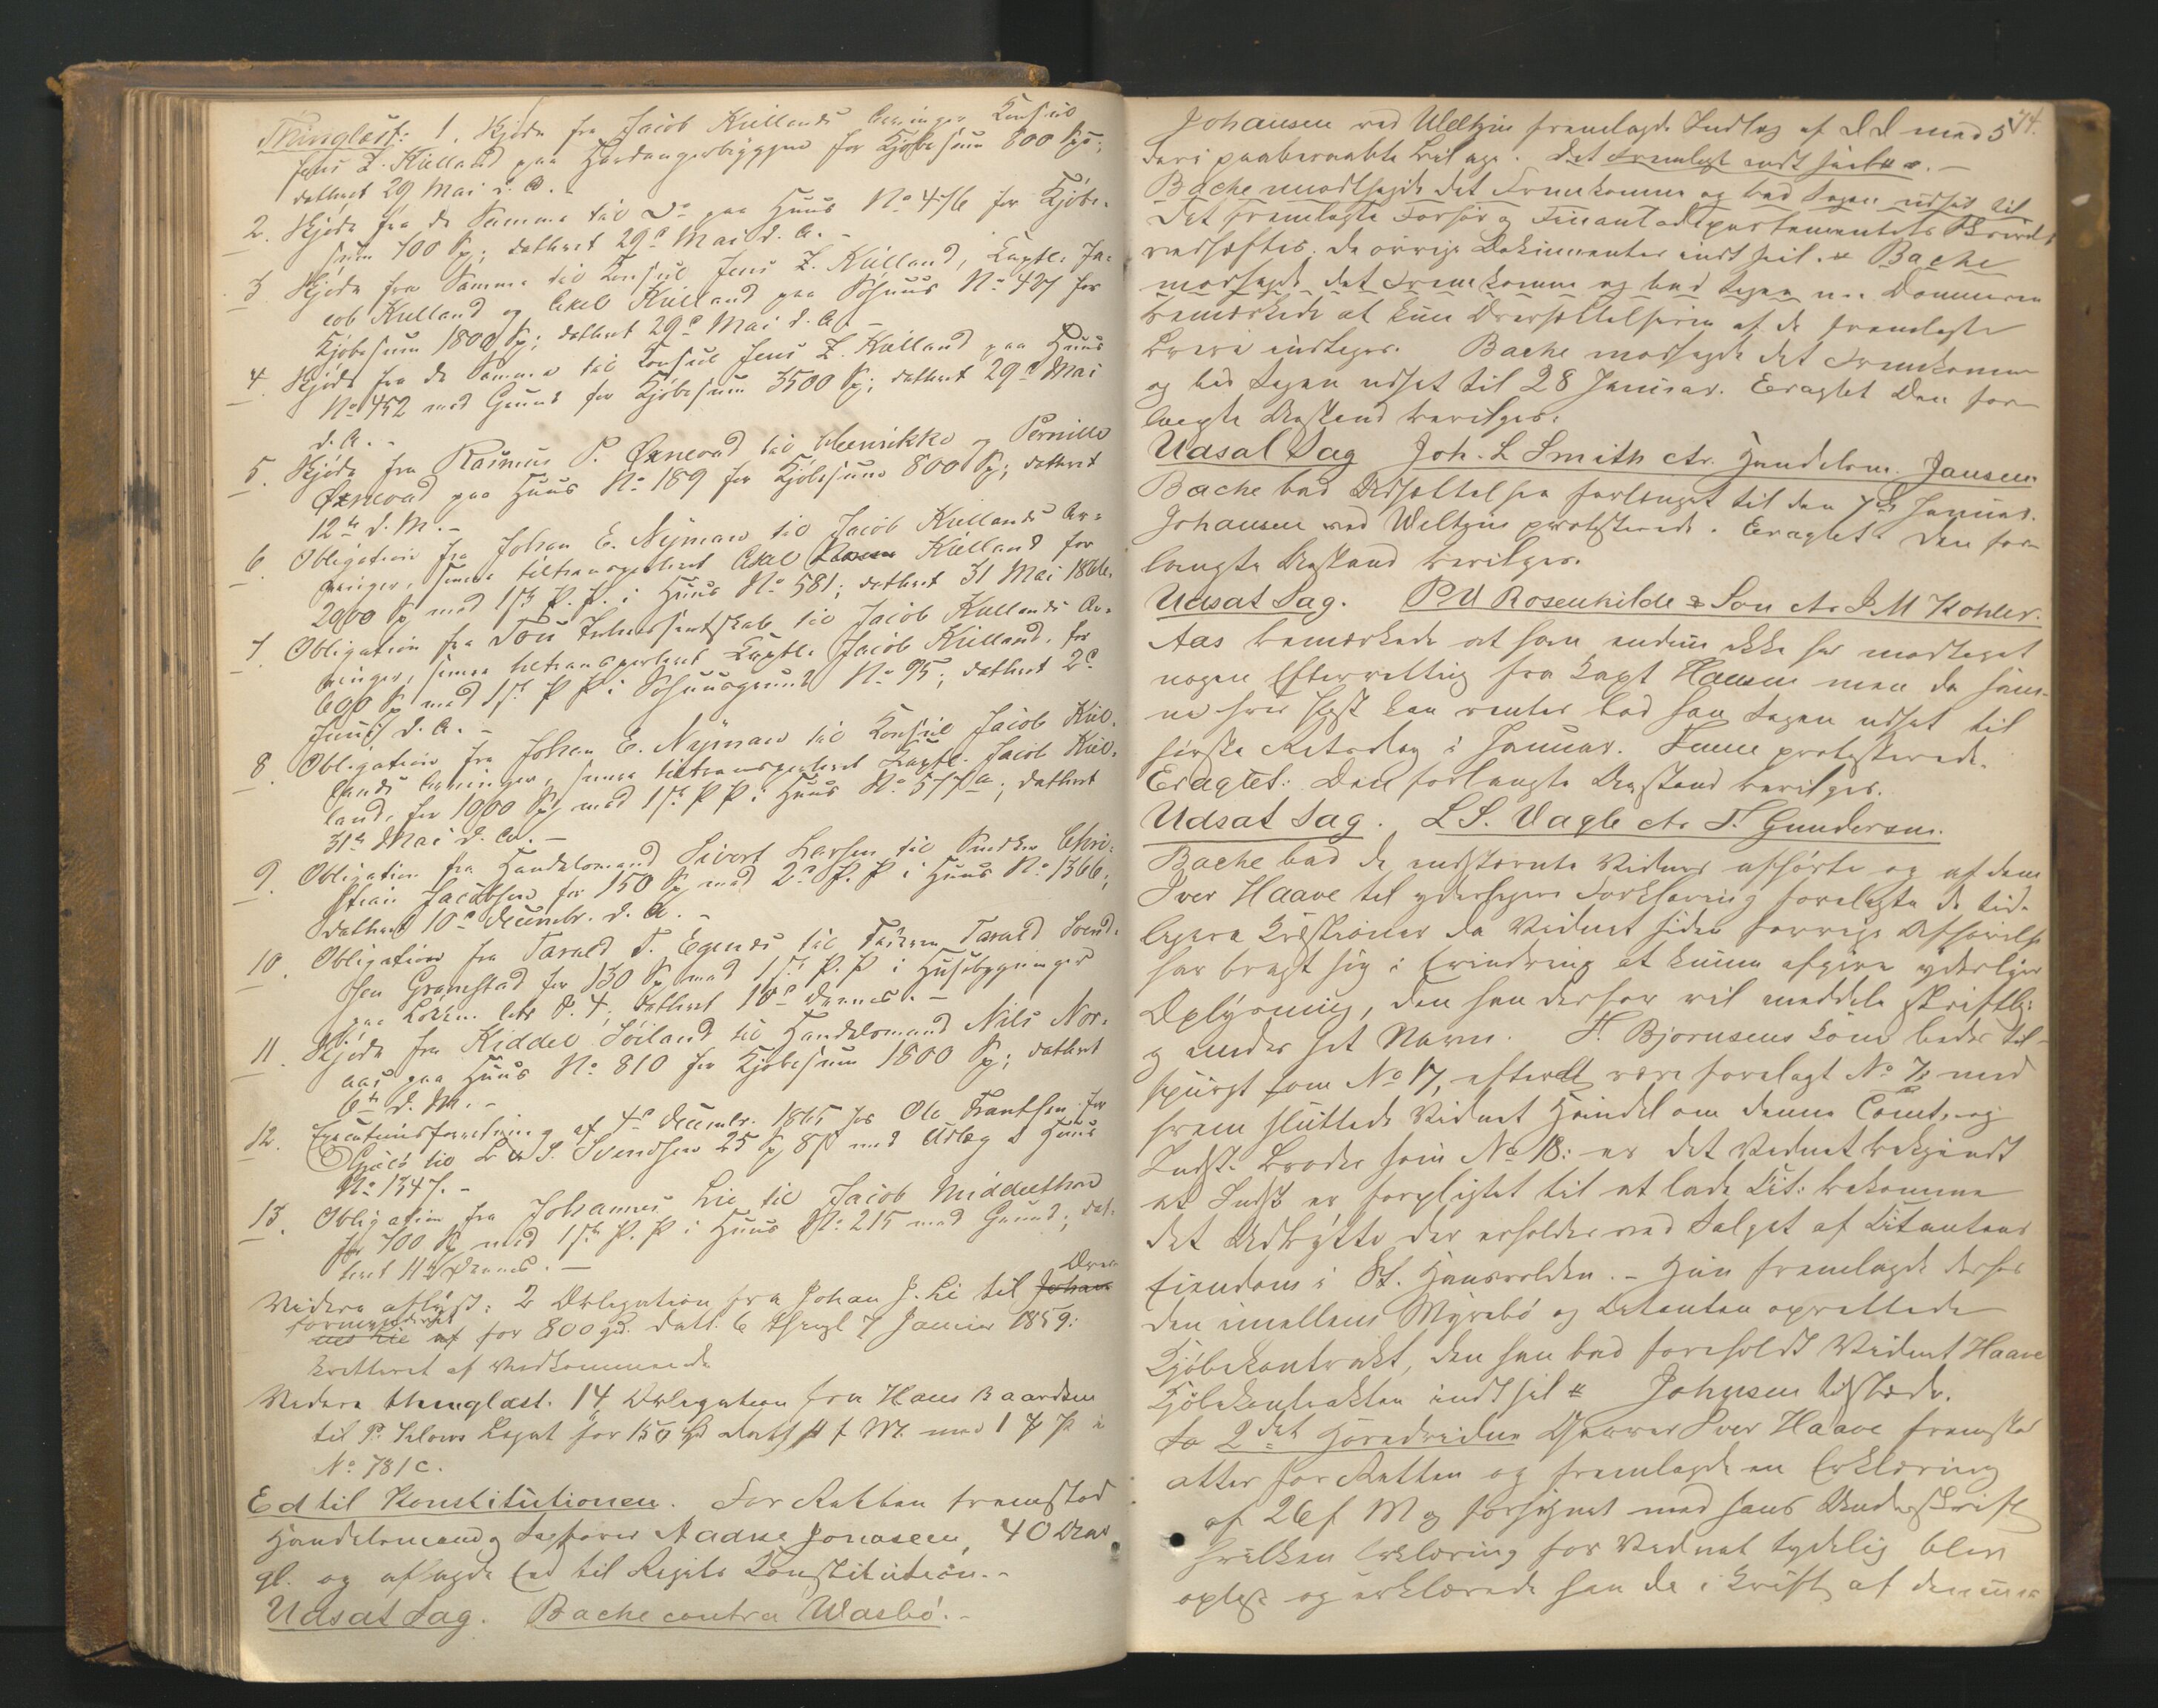 Thinglæst: 1. Skjøde fra Jacob Kiellands Arvinger Konsul
Jens Z. Kielland paa Hardangerbryggen for Kjøbesum 800 Spd;
datteret 29 Mai d. A. -
2. Skjøde fra de Samme til Do paa Huus No 476 for Kjøbe-
sum 700 Sp; datteret 29d Mai d. A. -
3 Skjøde fra Samme til Konsul Jens Z. Kielland, Captl. Ja-
cob Kielland og Axel Kielland paa Søhuus No 427 for
Kjøbesum 1800 Sp; datteret 29d Mai d. A. -
4. Skjøde fra de Samme til Consul Jens Z. Kielland paa Huus
No 452 med Grund for Kjøbesum 3500 Sp; datteret 29d Mai
d. A. -
5. Skjøde fra Rasmus P. Øxnevad til Henrikke og Pernille
Øxnevad paa Huus No 189 for Kjøbesum 800 Sp; datteret
12te d. M. -
6. Obligation fra Johan E. Nyman til Jacob Kiellands Ar-
vinger, senere tiltransporteret Axel Kielland for
2000 Sp med 1ste P. P. i Huus No 581; datteret 31 Mai 1866.
7. Obligation fra Tou Interessentskab til Jacob Kiellands Ar-
vinger, senere tiltransporteret Captl. Jacob Kielland, for
600 Sp med 1st P P i Søhuusgrund No 95; datteret 2d
Juni d. A. -
8. Obligation fra Johan E. Nyman til Konsul Jacob Kiel-
lands Arvinger, senere tiltransporteret Captl. Jacob Kiel-
land, for 1000 Sp med 1ste P P i Huus No 577a; datteret
31te Mai d. A. -
9. Obligation fra Handelsmand Sivert Larsen til Snedker Chri-
stian Jacobsen for 150 Sp med 2d P. P i Huus No 1366;
datteret 10d Decembr. d. A. -
10. Obligation fra Tarald T. Egenes til Tarald Svend-
sen Gramstad for 130 Sp med 1ste P. P i Husebygninger
paa Løkken. litr D. 4; datteret 10d dennes. -
11. Skjøde fra Kiddel Søiland til Handelsmand Nils Nor-
aas paa Huus No 810 for Kjøbesum 1800 Sp; datteret
6te d. M. -
12. Executionsforretning af 4d Decembr. 1865 hos Ole Frantsen for
til L S. Svendsen 25 Sp 8 s med Udlæg i Huus
No 1347. -
13. Obligation fra Johannes Lie til Jacob Middelthon
for 700 Sp med 1ste P. P i Huus No 215 med Grund; dat-
teret 11te dennes. -
Videre aflyst: 2 Obligation fra Johan J. Lie til Over
formynderiet for 800 Spd. datt. 6 thingl 7 Januar 1859:
kvitteret af Vedkommende
Videre thinglæst. 14 Obligation fra Hans Baardsen
til P. Klows Legat for 150 Spd datt f M. med 1 P. P i
No 781c.
Ed til Konstitutionen. For Retten fremstod
Handelsmand Aadne Jonasen, 40 Aar
gl. og aflagde Ed til Rigets Constitution. -
Udsat Sag. Bache contra Wasbø. -
74.
Johansen ved Weltzin fremlagde Indlæg af D D med 5
deri paaberaabte Bilage. Det Fremlagte indt hertil. -
Bache modsagde det Fremkomne og bad Sagen udsat til
Det fremlagte Forhør og Finantsdepartementets Skrivelse
vedhæftes. de øvrige Dokumenter indt hertil. Bache
modsagde det Fremkomne og bad Sagen Dommeren
bemærkede at kun Oversættelserne af de fremlagte
Breve indtages. Bache modsagde det Fremkomne
og bad Sagen udsat til 28 Januar. Eragtet Den for-
langte Anstand bevilges.
Udsat Sag Joh. L Smith ctr. Handelsm. Jansen
Bache bad Udsættelsen forlænget til den 7de Januar.
Johansen ved Weltzin protesterede. Eragtet: Den for-
langte Anstand bevilges.
Udsat Sag. P V Rosenkilde & Søn ctr. J M Kohler.
Aas bemærkede at han endnu ikke har modtaget
nogen Efterretning fra Capt Hansen men da saa-
ne hver Post kan ventes bad han Sagen udsat til
første Retsdag i Januar. Funne protesterede.
Eragtet: Den forlangte Anstand bevilges.
Udsat Sag. L S. Vagle ctr. T. Gundersen.
Bache bad de indstævnte Vidner afhørte og af dem
Iver Haave til yderligere Forklaring forelagte de tid-
ligere Qvæstioner da Vidnet siden forrige Afhørelse
har bragt sig i Erindring at kunne afgive yderligere
Oplysning, den han derfor vil meddele skriftlig
og under sit Navn. T. Bjornsens Kone bedes til-
spurgt som No 17, efterat være forelagt No 7: med
hvem sluttede Vidnet Handel om denne Comt. og
Indst. Broder som No 18: er det Vidnet bekjendt
at Indst er forpligtet til at lade Cit: bekomme
det Udbytte der erholdes ved Salget af Citantens
Eiendom i St. Hansvolden. - Han fremlagde derhos
den imellem Myrebø og Citanten oprettede
Kjøbekontrakt, den han bad foreholdt Vidnet Haave
Kjøbekontrakten indt hertil Johnsen tilstede.
Som 2det Hovedvidne Iver Haave fremstod
atter for Retten og fremlagde en Erklæring
af 26 f M og forsynet med hans Underskrift
hvilken Erklæring for Vidnet tydelig blev
oplæst og erklærede han da i Kraft af den